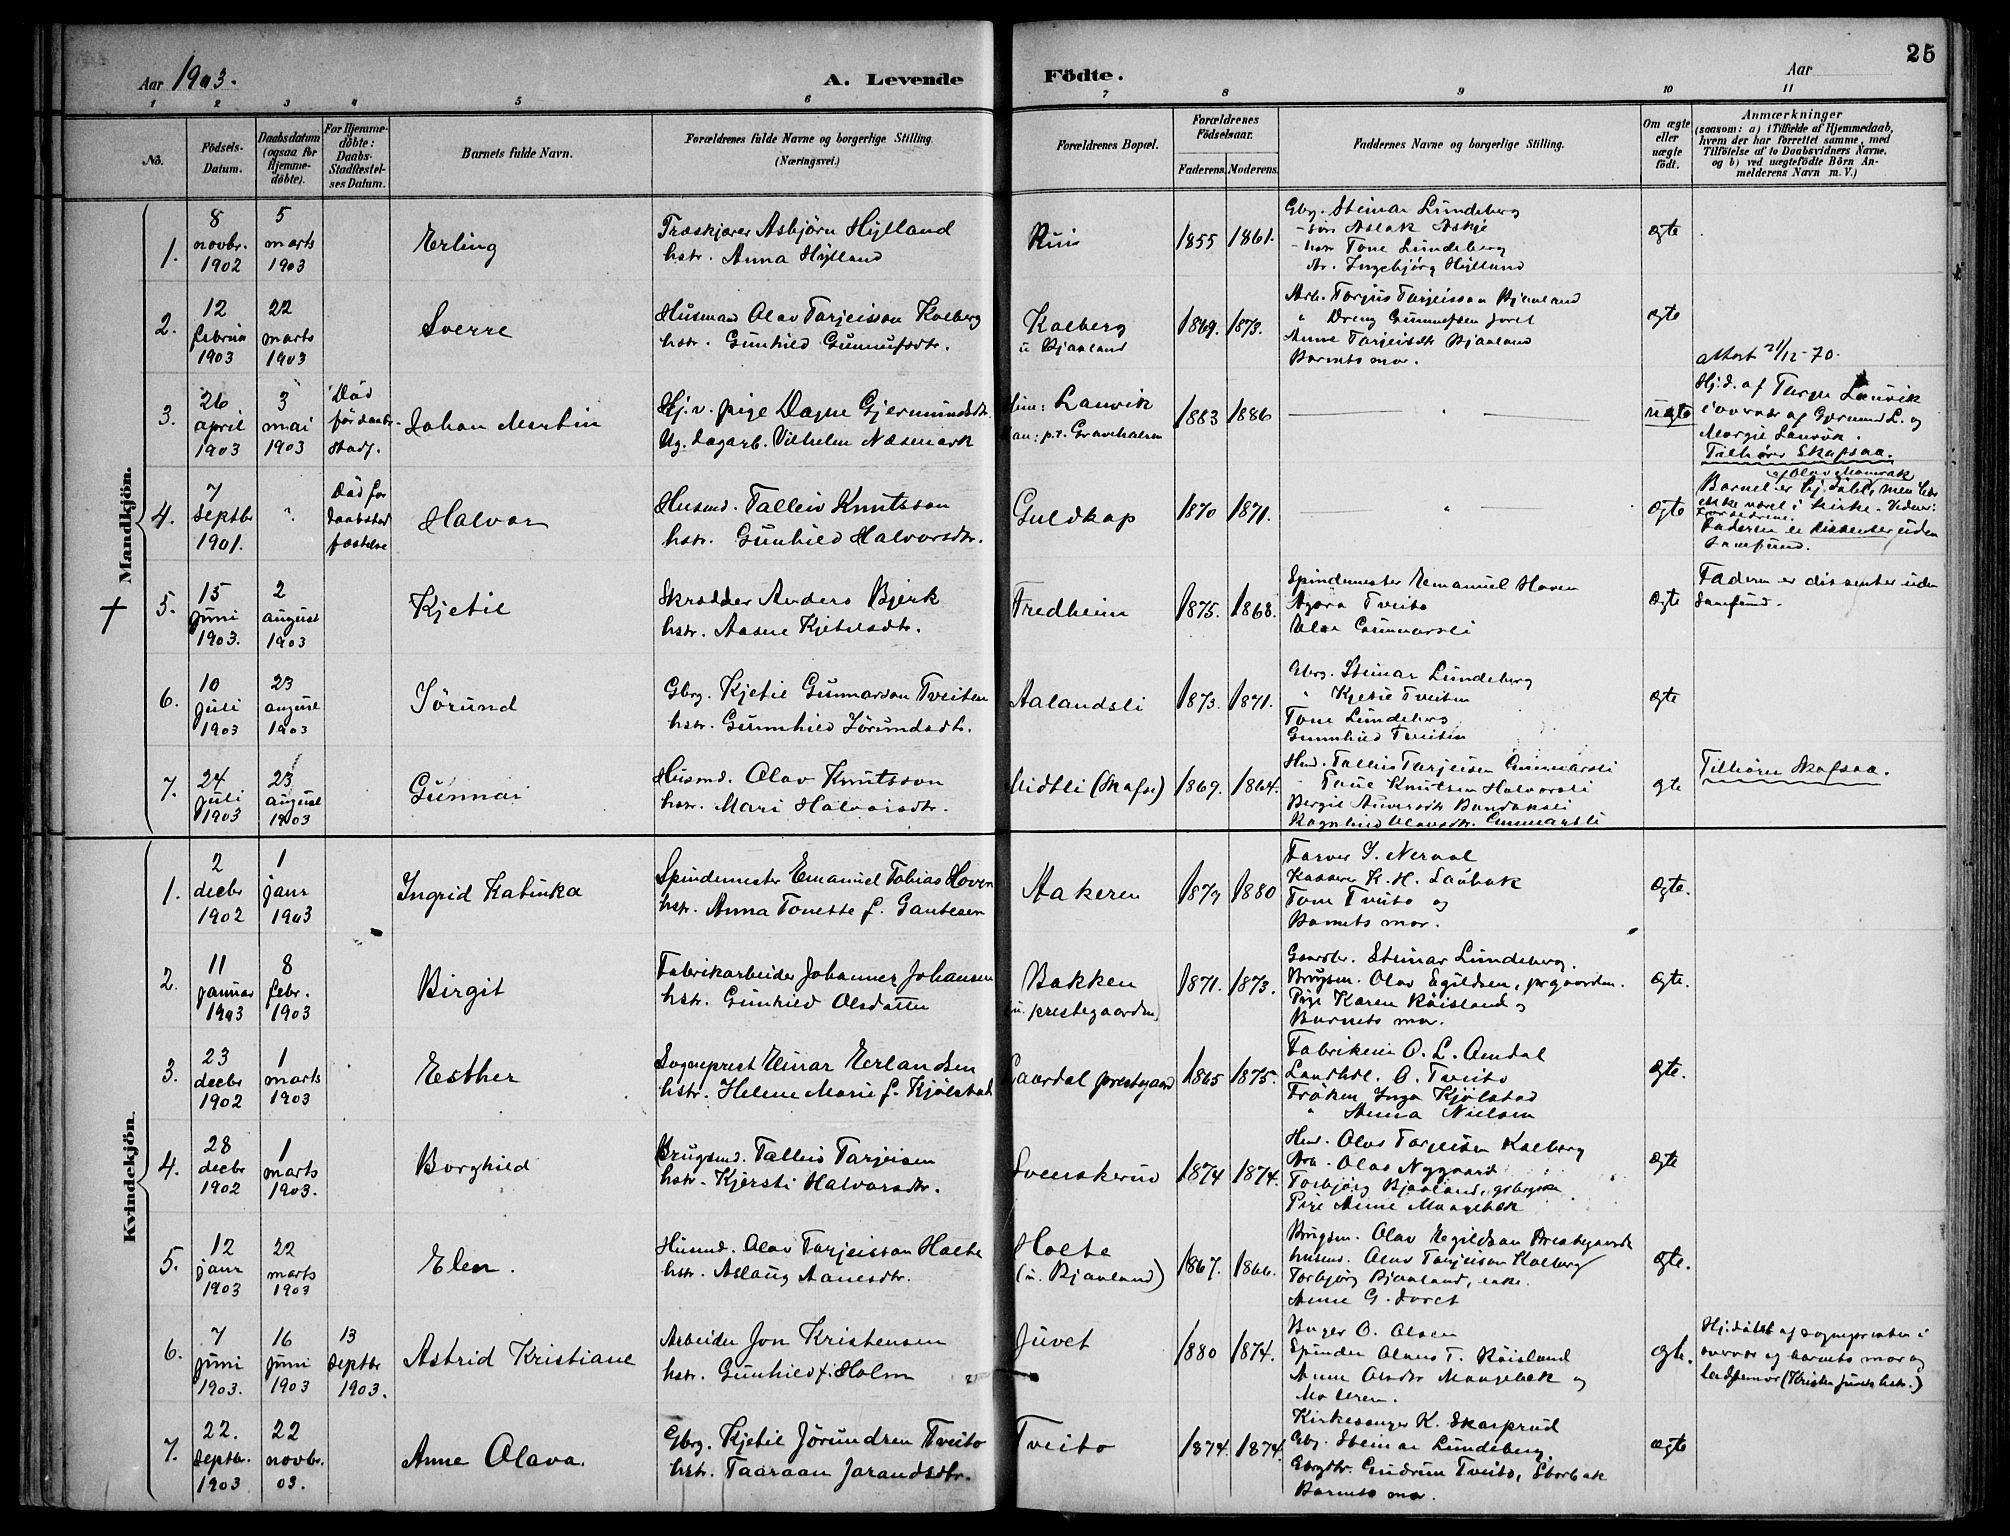 25
Aar 1903.
A. Levende Födte.
Aar
1 2 3 4 5 6 7 8 9 10 11
No.
Födsels-
Datum.
Daabsdatum
(ogsaa for
Hjemme-
döbte).
For Hjemme-
döbte:
Daabs-
Stadfæstel-
ses Datum.
Barnets fulde Navn.
Forældrenes fulde Navne og borgerlige Stilling.
(Næringsvei.)
Forældrenes Bopæl.
Forældrenes
Födselsaar.
Faderens. Moderens.
Faddernes Navne og borgerlige Stilling.
Om ægte
eller
uægte
födt.
Anmærkninger
(saasom: a) i Tilfælde af Hjemmedaab,
hvem der har forrettet samme, med
Tilföielse af to Daabsvidners Navne,
og b) ved uægtefödte Börn An-
melderens Navn m. V.)
Mandkjön.
1.
8
novbr.
1902
5
marts
1903
Erling
Træskjærer Asbjörn Hylland
hstr. Anna Hylland
Ruin
1855 1861.
Gbg. Steinar Lundeberg
- sön Aslak Askje
- hstr Tone Lundeberg
Ar. Ingebjörg Hylland
ægte
2.
12
februar
1903
22
marts
1903
Sverre
Husmand Olav Tarjeisson Kolberg
hstr. Gunhild Gunnufsdtr.
Kolberg
u Bjaaland
1869. 1873.
Arb. Torjus Tarjeisson Bjaaland
" Dreng Gunnufsen Juvet
Anne Tarjeisdtr Bjaaland
Barnets mor.
ægte
attest 21/12-70.
3.
26
april
1903
3
mai
1903
Död
för daabs-
stadf.
Johan Martin
Hj. v. pige Dagne Gjermundsdtr.
Ug. dagarb. Vilhelm Næsmark
Hun: Lauvik
han: p.t. Gravhalsen
1883 1886
uægte
Hj.d. af Targe Lauvik
i overvær af Gjermund L. og
Margit Lauvik.
Tilhörer Skafsaa.
4.
7
septbr
1901.
Död for
daabsstad
fæstelse
Halvor
Husmd. Talleiv Knutsson
hstr. Gunhild Halvorsdtr.
Guldkap
1870 1871.
ægte
Barnet er hj. döbt, men har
ikke været i kirke.
Faderen er dissenter uden
samfund.
5.
15
juni
1903.
2
august
1903
Kjetil
Skrædder Anders Bjerk
hstr. Aasne Kjetilsdtr.
Fredheim
1875. 1868.
Spindemester Emanuel Hoven
Gyro Tveito
Olav Gunnarsli
ægte
Faderen er dissenter uden
samfund.
6.
10
juli
1903
23
august
1903
Jörund
Gbrg. Kjetil Gunnarson Tveiten
hstr. Gunnhild Jörundsdtr.
Aalandsli
1873. 1871.
Gbrg. Steinar Lundeberg
" Kjetil Tveiten
Tone Lundeberg
Gunnhild Tveiten
ægte
7.
24
juli
1903
23
august
1903
Gunnar
Husmd. Olav Knutsson
hstr. Mari Halvorsdtr.
Midtli (Skafså)
1869. 1864.
Hmd. Talleiv Tarjeisen Gunnarsli
Knutsen Halvorsli
Bergit Bandaksli
Ragnhild Olavsdtr. Gunnarsli
gte
Tilhörer Skafsaa.
Kvindekjön.
1.
2
decbr
1902
1
janr
1903
Ingrid Katinka
Spindemester Emanuel Tobias Hoven
hstr. Anna Tonette f. Gautesen
Aakeren
1877 1880
Farver J. Neraal
Kasserer K. H. Laubak
Tone Tveito og
Barnets mor.
ægte.
2.
11
januar
1903
8
febr.
1903
Birgit
Fabrikarbeider Johannes Johansen
hstr. Gunhild Olsdatter
Bakken
u. prestegaarden
1871. 1873.
Gaardbr. Steinar Lundeberg.
Brugsm. Olav Egildsen, prgaarden.
Pige Karen Röisland og
Barnets mor.
ægte.
3.
23
decbr
1902
1
marts
1903
Esther
Sogneprest Einar Erlandsen
hstr. Helene Marie f. Kjölstad
Laardal prestegaard
1865 1875.
Fabrikeier O. L. Omdal
Landhdl. O. Tveito
Fröken Inga Kjölstad
" Anna Nielsen
ægte.
4.
28
decbr
1902
1
marts
1903.
Borghild
Brugsmd. Talleiv Tarjeisen
hstr. Kjersti Halvorsdtr.
Svenskerud
1874 1874.
Hmd. Olav Tarjeisen Kolberg
Arb. Olav Nygaard
Torbjörg Bjaaland, gbrgske
Pige Anne Maagebæk
ægte
5.
12
janr
1903
22
marts
1903
Elen.
Husmd. Olav Tarjeisson Holte
hstr. Aslaug Aanesdtr.
Holte
(u. Bjaaland)
1867. 1866.
Brugsm. Olav Egildsen Prestegaarden
husmd. Olav Tarjeison Kolberg
Torbjörg Bjaaland, enke.
Anne G. Juvet
ægte.
6.
7
juni
1903.
16
juni
1903
13
septbr
1903.
Astrid Kristiane
Arbeider Jon Kristensen
hstr. Gunhild f. Holm
Juvet
1880 1874.
Bager O. Olsen
Spinder Olaus T. Röisland
Anne Olsdtr Maagebæk og
Moderen.
ægte.
Hj.döbt af sognepresten i
overvær af barnets mor og
bedstemor (Kristen Juvets hstr.)
7.
22.
septbr.
1903
22
novbr.
03.
Anne Olava.
Gbrg. Kjetil Jörundsen Tveito
hstr. Taaraan Jarandsdtr.
Tveito
1874. 1874.
Kirkesanger K. Skarprud
Gbg. Steinar Lundeberg.
Gbrgdtr. Gudrun Tveito, Storbæk
Barnets mor.
ægte